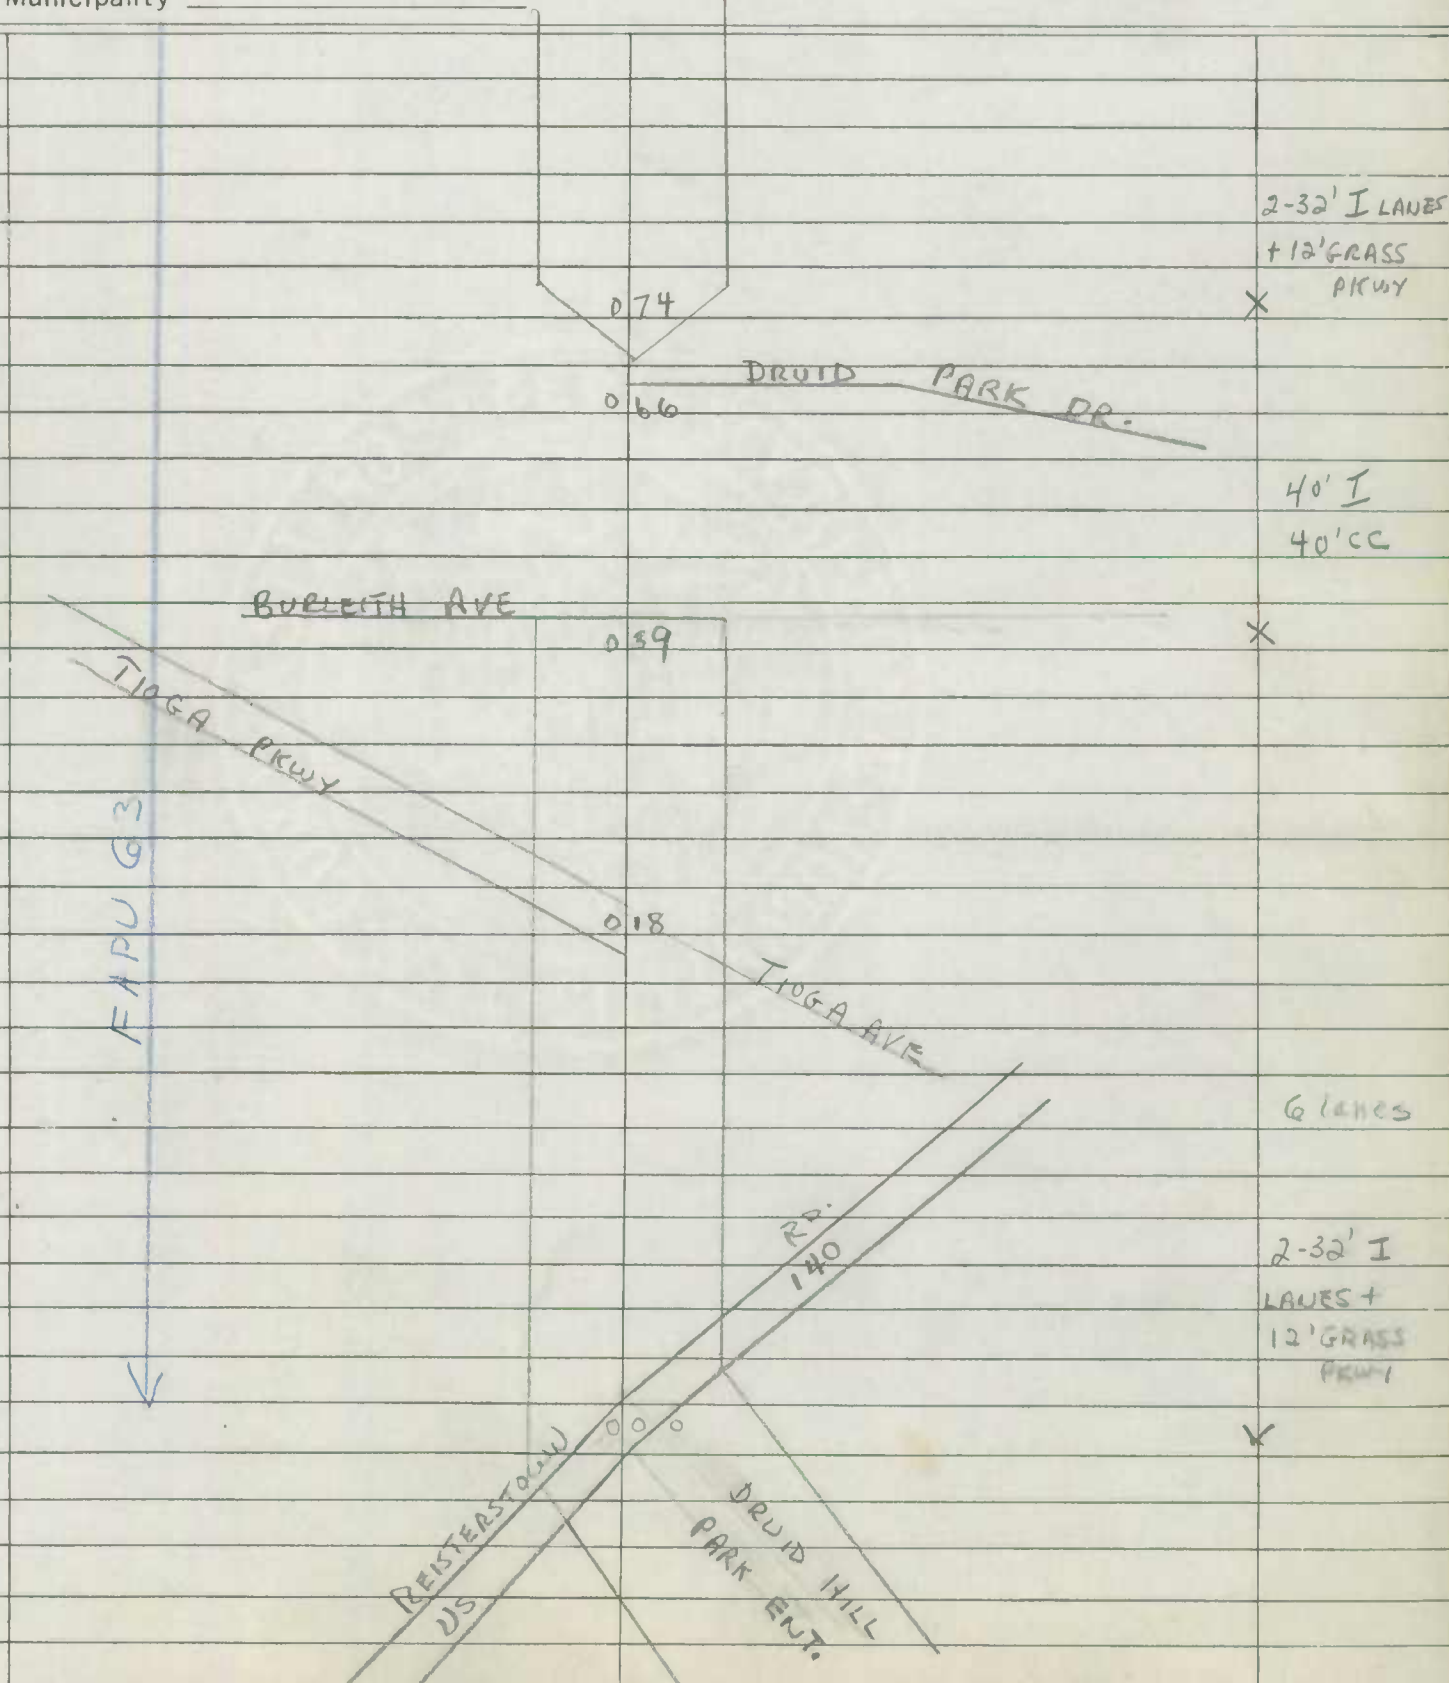 Municipality
2-32' I LANES
+ 12' GRASS
PKWY
0 74
DRUID PARK DR.
0 66
40' I
40' CC
BURLEITH AVE
0 39
TIOGA PKWY
FAPU 63
0 18
TIOGA AVE
6 lanes
RD.
140
2-32' I
LANES +
12' GRASS
PKWY
0 0 0
REISTERSTOWN
US
DRUID HILL
PARK ENT.